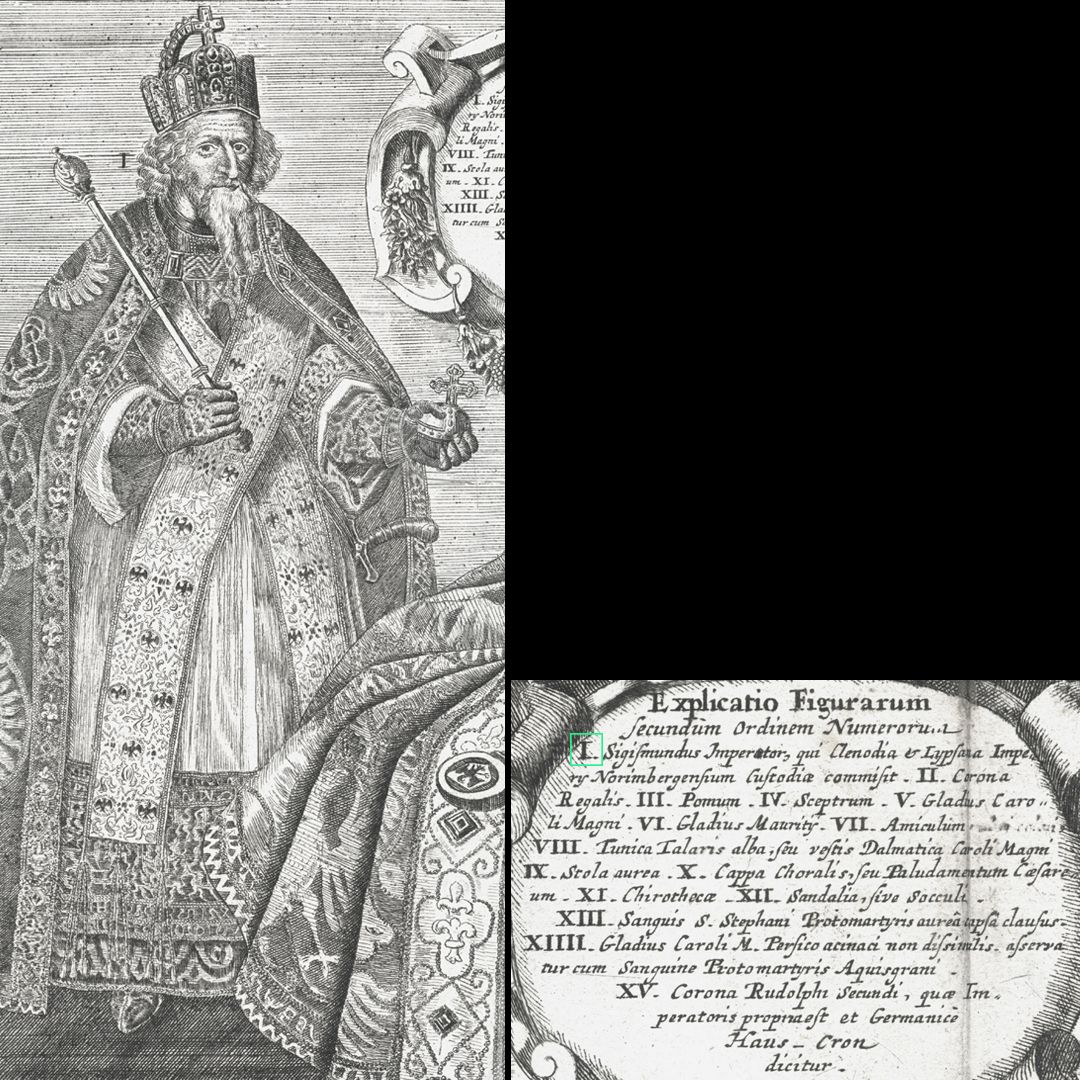 I
I. Sigi
ry Norim
Regalis.
li Magni.
VIII. Tuni
IX. Stola au
um - XI. C
XIII. S
XIIII. Gla
tur cum S
X
Explicatio Figurarum
secundum Ordinem Numeroru
I. Sigismundus Imperator, qui Clenodia & Lypsana Impe
ry Norimbergensium Custodiæ commisit. II. Corona
Regalis. III. Pomum. IV. Sceptrum. V. Gladus Caro
li Magni. VI. Gladius Maurity. VII. Amiculum
VIII. Tunica Talaris alba, seu vestis Dalmatica Caroli Magni
IX. Stola aurea. X. Cappa Choralis, seu Paludamentum Cæsare
um. XI. Chirothecæ XII. Sandalia, sive Socculi.
XIII. Sanguis S. Stephani Protomartyris aureâ capsâ clausus.
XIIII. Gladius Caroli M. Persico acinaci non dissimilis. asserva
tur cum Sanguine Protomartyris Aquisgrani.
XV. Corona Rudolphi Secundi, quæ Im-
peratoris propria est et Germanicè
Haus-Cron
dicitur.